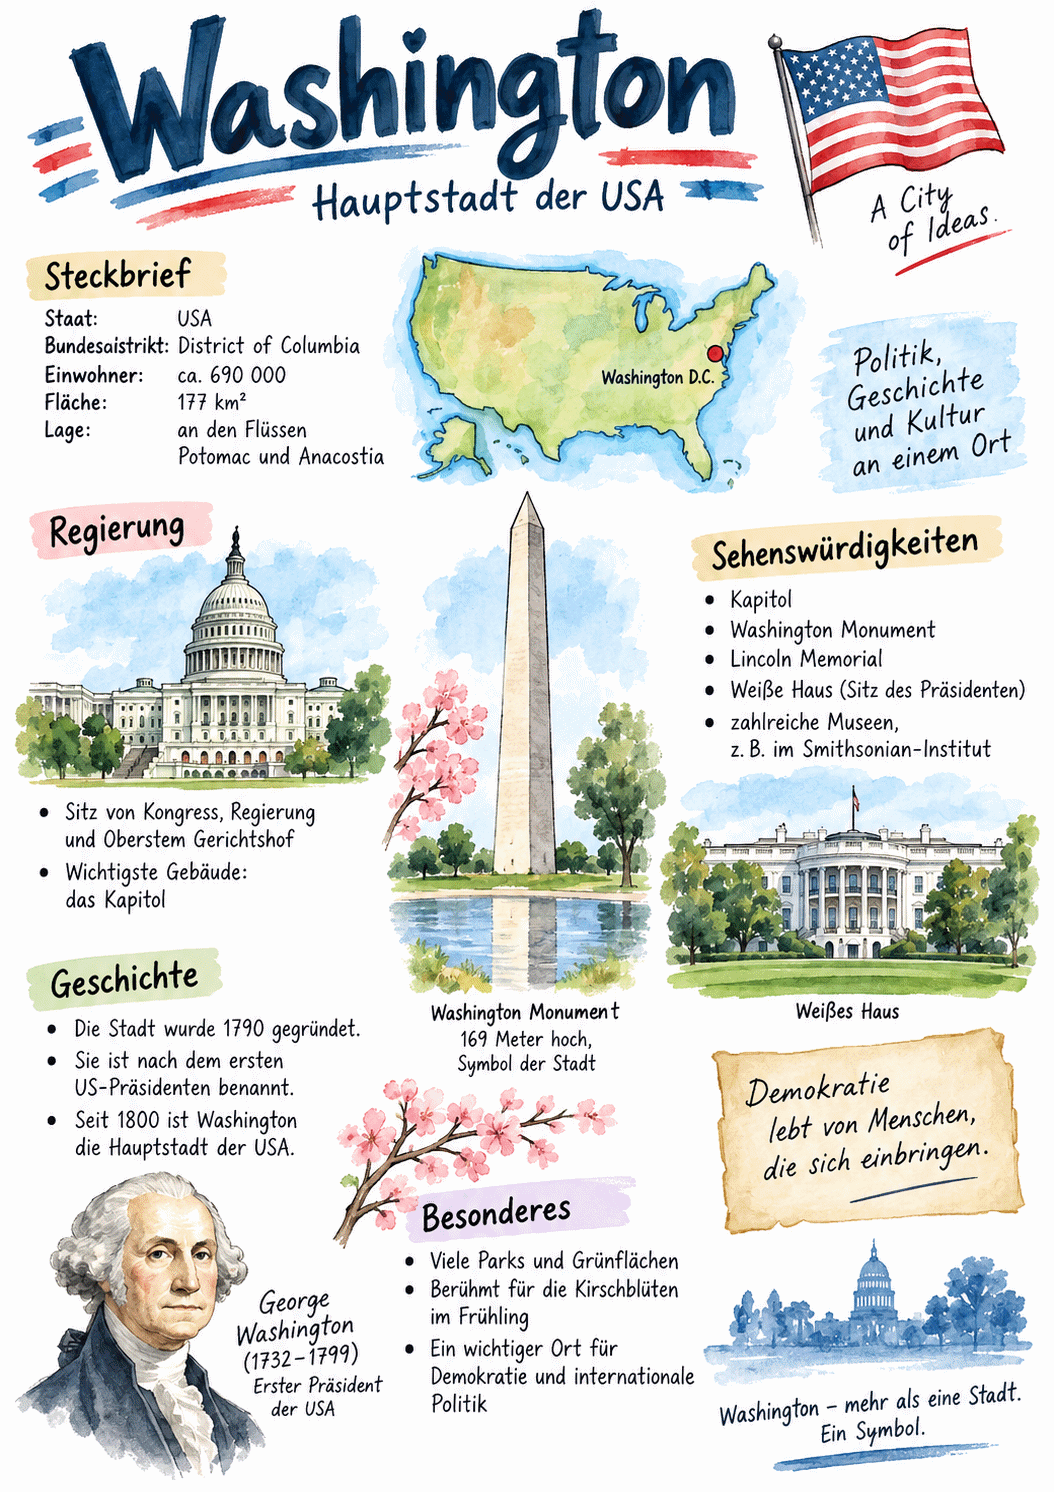 Washington
Hauptstadt der USA
A City
of Ideas.
Steckbrief
Staat: USA
Bundesaistrikt: District of Columbia
Einwohner: ca. 690 000
Fläche: 177 km²
Lage: an den Flüssen
Potomac und Anacostia
Washington D.C.
Politik,
Geschichte
und Kultur
an einem Ort
Regierung
• Sitz von Kongress, Regierung
und Oberstem Gerichtshof
• Wichtigste Gebäude:
das Kapitol
Washington Monument
169 Meter hoch,
Symbol der Stadt
Sehenswürdigkeiten
• Kapitol
• Washington Monument
• Lincoln Memorial
• Weiße Haus (Sitz des Präsidenten)
• zahlreiche Museen,
z. B. im Smithsonian-Institut
Weißes Haus
Geschichte
• Die Stadt wurde 1790 gegründet.
• Sie ist nach dem ersten
US-Präsidenten benannt.
• Seit 1800 ist Washington
die Hauptstadt der USA.
George
Washington
(1732–1799)
Erster Präsident
der USA
Besonderes
• Viele Parks und Grünflächen
• Berühmt für die Kirschblüten
im Frühling
• Ein wichtiger Ort für
Demokratie und internationale
Politik
Demokratie
lebt von Menschen,
die sich einbringen.
Washington – mehr als eine Stadt.
Ein Symbol.